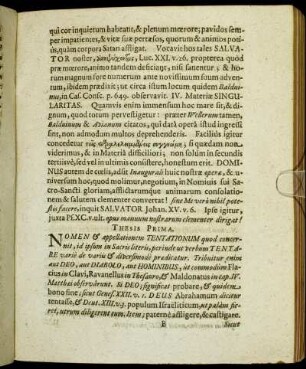 qui cor inquietum habeat, & plenum mœrore; pavidos sem-
per impatientes, & vitæ suæ pertæsos, quorum & animos potiùs,
quàm corpora Satan affligat. Vocavit hos tales SALVA-
TOR noster, Luc. XXI. v. 26. propterea quòd
præ mœrore, animo tandem deficiant; nisi fateatur, & ho-
rum magnum fore numerum ante novissimum suum adven-
tum, ibidem prædixit; ut circa istum locum quidem Baldui-
nus, in Cas. Consc. p. 649. observavit. IV. Materiæ SINGU-
LARITAS. Quamvis enim immensum hoc mare sit, & di-
gnum, quod totum pervestigetur: præter Wellerum tamen,
Balduinum & Avianum citatos, qui data operâ istud ingressi
sint, non admodum multos deprehenderis. Facilius igitur
concedetur si quædam non
viderimus, & in Materiâ difficiliori, non solùm in secundis
tertiisvè, sed vel in ultimis consistere, honestum erit. DOMI-
NUS autem de cœlis, adsit Inaugurali huic nostræ operæ, & u-
niversum hoc, quod molimur, negotium, in Nominis sui Sa-
cro-Sancti gloriam, afflictarumque animarum consolatio-
nem & salutem clementer convertat! sine Me verò nihil pote-
stis facere, inquit SALVATOR Johan. XV. v. 5. Ipse igitur,
juxta PS. XC. v. ult. opus manuum nostrarum clementer dirigat!
THESIS PRIMA.
NOMEN & appellationem TENTATIONUM quod concer-
nit, id ipsum in Sacris literis, perinde ut verbum TENTA-
RE variè de variis & diversimodè prædicatur. Tribuitur enim
aut DEO, aut DIABOLO, aut HOMINIBUS, ut commodùm Fla-
cius in Clavi, Ravanellus in Thesauro, & Maldonatus in cap. IV.
Matthæi observârunt. Si DEO, significat probare, & quidem,
bono fine; sicut Genes. XXII. v. 1. DEUS Abrahamum dicitur
tentasse, & Deut. XIII. v. 3. populum Israëliticum, ut palàm fie-
ret, utrum diligerent eum. Item; paternè affligere, & castigare.
B
Sicut